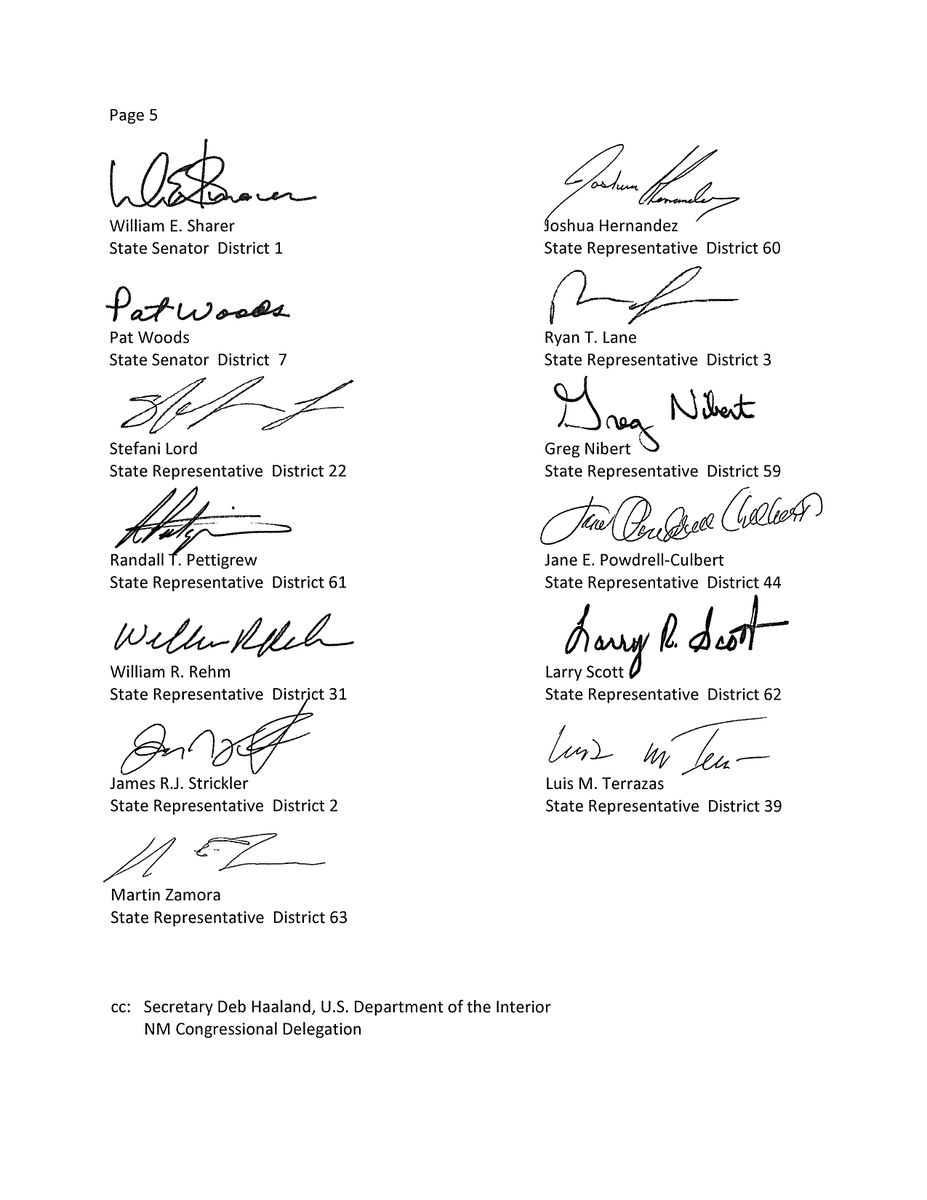 Page 5
William E. Sharer
State Senator District 1
Joshua Hernandez
Joshua Hernandez
State Representative District 60
Pat Woods
Pat Woods
State Senator District 7
Ryan T. Lane
State Representative District 3
Stefani Lord
State Representative District 22
Greg Nibert
Greg Nibert
State Representative District 59
Randall T. Pettigrew
State Representative District 61
Jane Powdrell Culbert
Jane E. Powdrell-Culbert
State Representative District 44
William R. Rehm
State Representative District 31
Larry R. Scott
Larry Scott
State Representative District 62
James R.J. Strickler
State Representative District 2
Luis M
Luis M. Terrazas
State Representative District 39
Martin Zamora
State Representative District 63
cc: Secretary Deb Haaland, U.S. Department of the Interior
NM Congressional Delegation